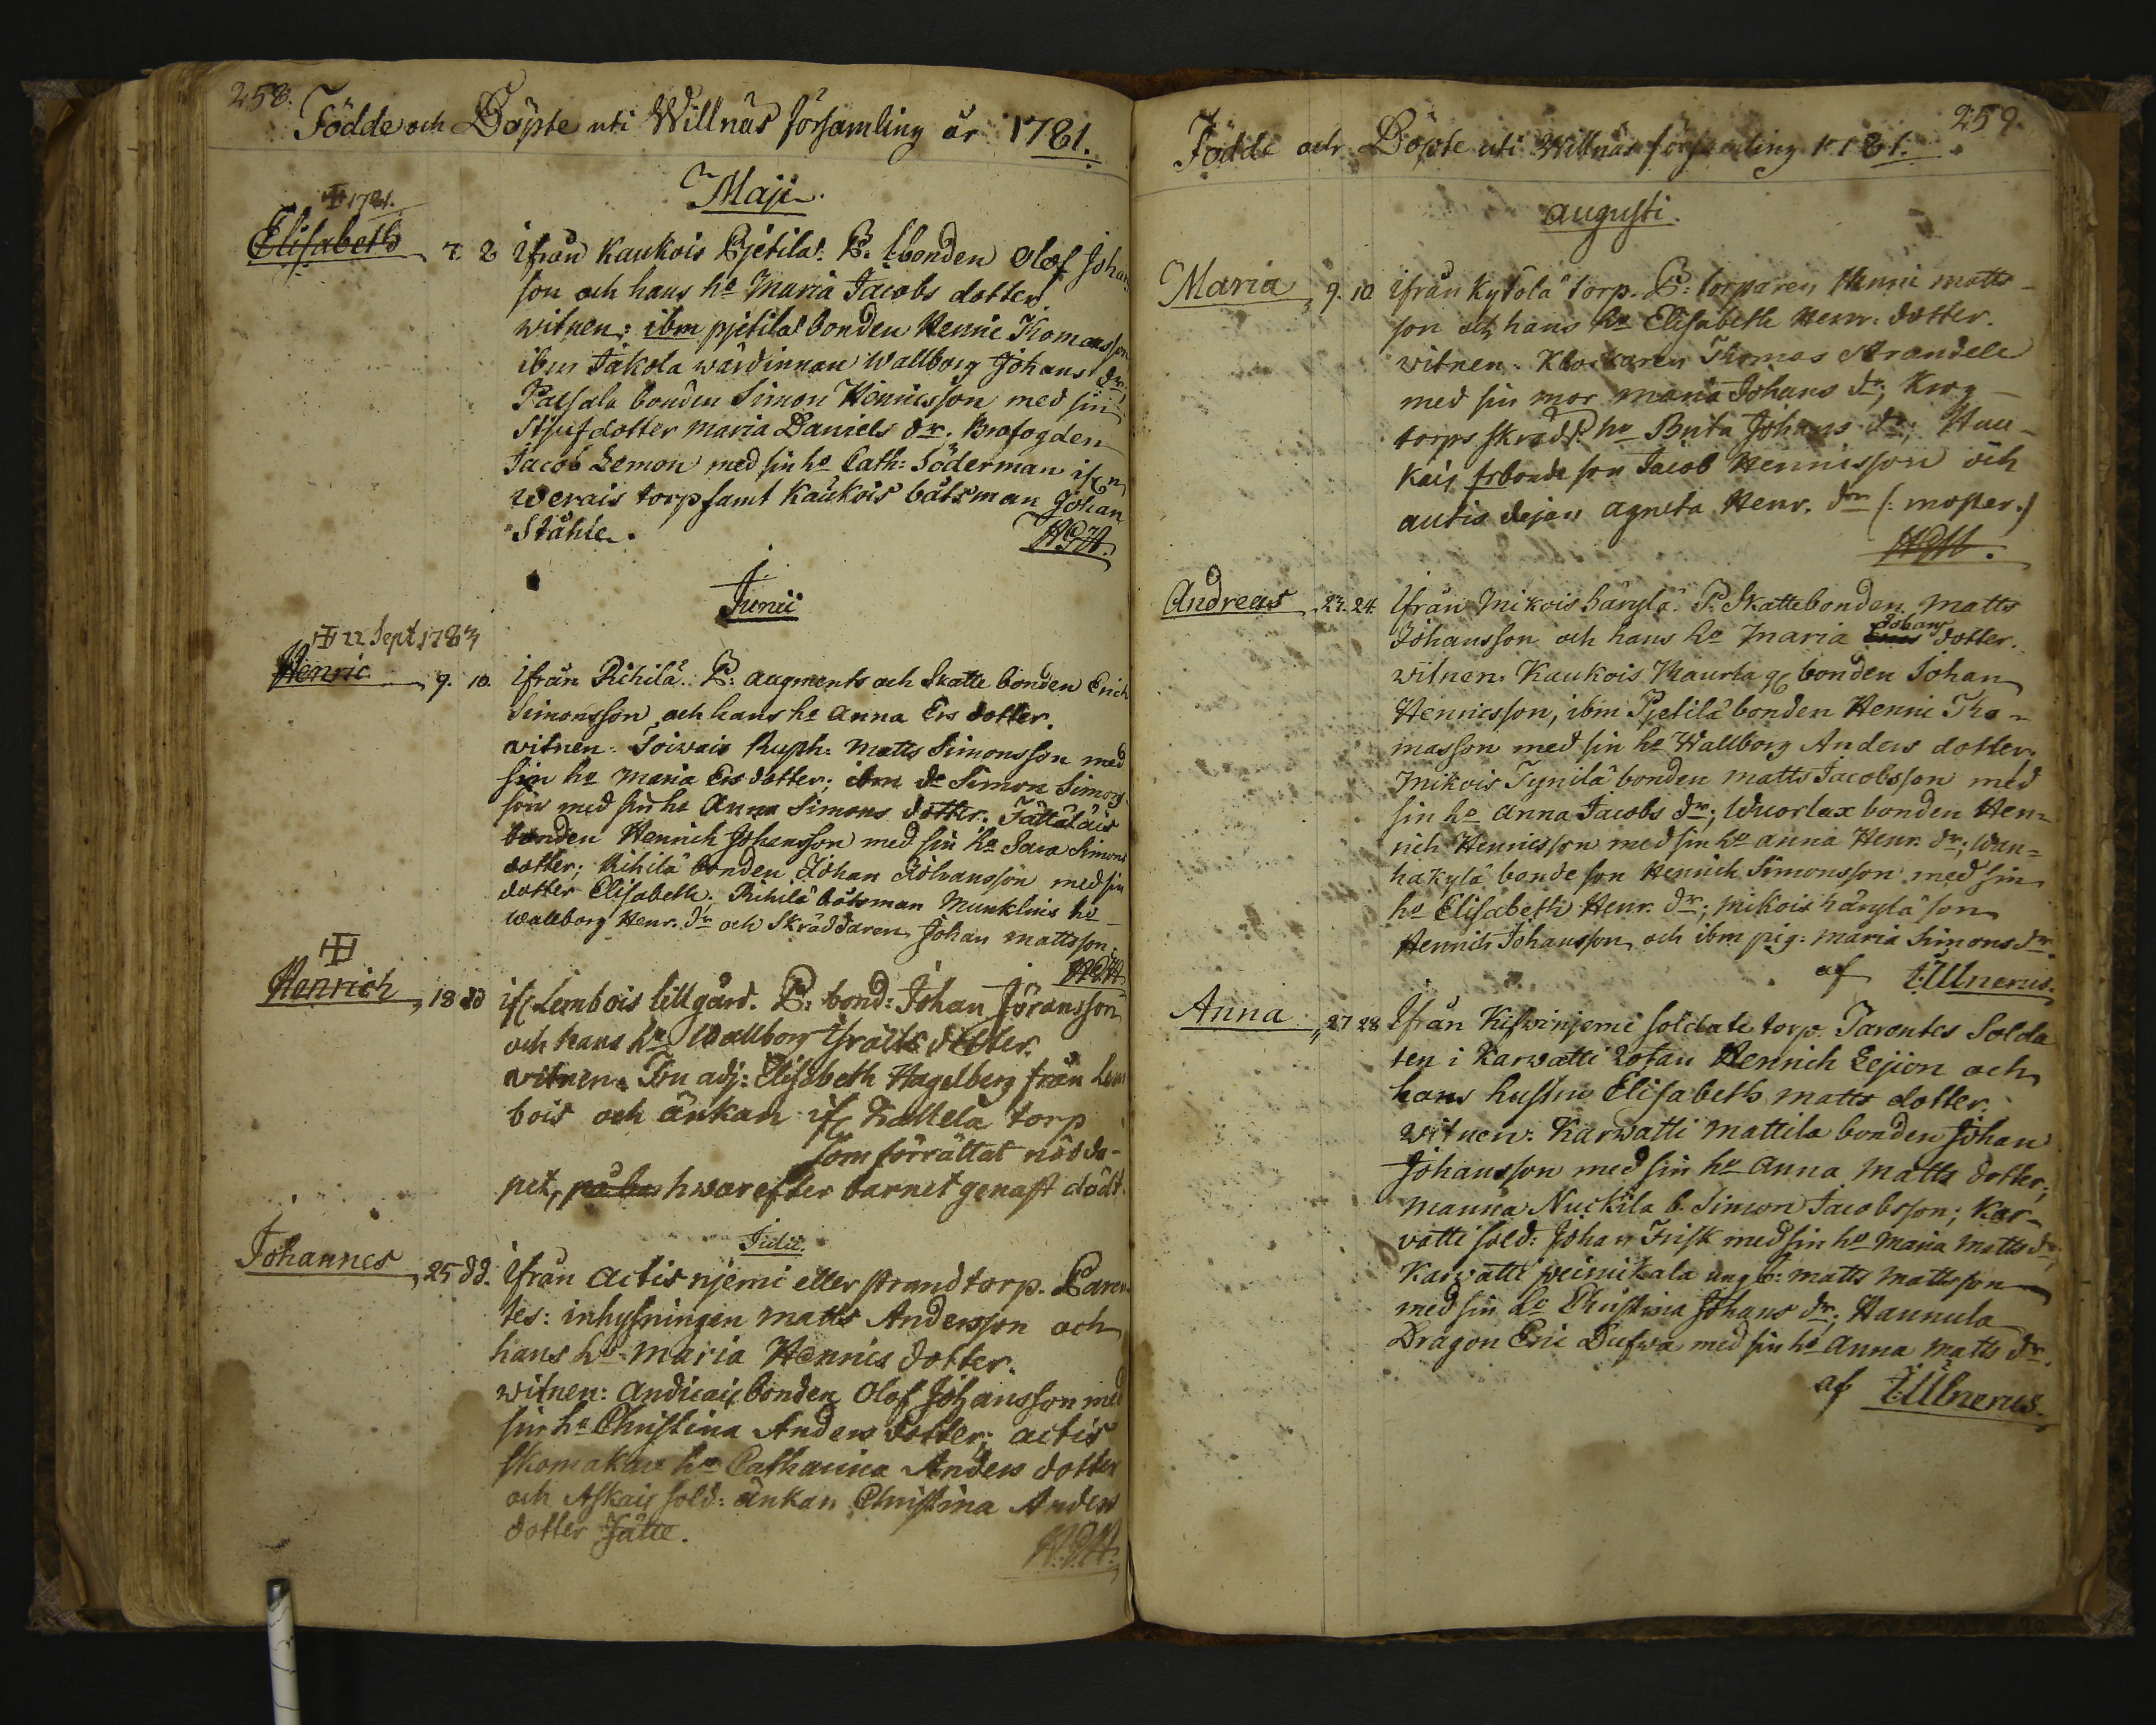 258.
Födde och Döpte uti Willnäs församling år 1781.
Maji
1781.
Elisabeth 7. 8 ifrån Kaukois Pjetila. P. bonden Olof Johan
son och hans ho Maria Jacobs dotter.
witnen: ibm pjetila bonden Henric Thomasson
ibm Jakola wärdinnan Wallborg Johans dr
Paesala bonden Simon Henricsson med sin
Stjufdotter Maria Daniels dr. Brofogden
Jacob Lemon med sin ho Cath: Söderman
Werais torp samt Kaukois båtsman Johan
Ståhle.
Junii
22 Sept 1783
Henric 9. 10. ifrån Rihilä. P: augments och Skatte bonden Erich
Simonsson och hans ho Anna Ers dotter.
witnen: Toiwais Rusth: Matts Simonsson med
sin ho Maria Ers dotter; ibm do Simon Simons
son med sin ho Anna Simons dotter. Tättäläis
bonden Henrich Johansson med sin ho Sara Simons
dotter; Rihilä bonden Johan Johansson med sin
dotter Elisabeth; Rihilä båtsman Munklins ho
Wallborg Henr. dr och Skräddaren Johan Mattsson.
Henrich 18 dd if Lembois lillgård. P. bond: Johan Jöransson
och hans ho Wallborg Israels dotter.
witnen: Fru adj: Elisabeth Hagelberg från Lem
bois och änkan if Kallela torp
som förrättat nödda-
pet, på ba hwarefter barnet genast dödt.
Julii.
Johannes 25 dd. Ifrån Actis njemi eller strandtorp. Paren
tes: inhysningen Matts Andersson och
hans ho Maria Henrics dotter.
witnen: Andicais bonden Olof Johansson med
sin ho Christina Anders dotter; actis
skomakare ho Catharina Anders dotter
och Askais sold: änkan Christina Anders
dotter Jätte.
259.
Födde och Döpte uti Willnäs församling 1781.
Augusti.
Maria 9. 10 ifrån Kytölä torp. P: torparen Henric Matts-
son och hans ho Elisabeth Henr: dotter.
witnen. Klockaren Thomas Strandell
med sin mor Maria Johans dr; Krog-
torps skrädd: ho Brita Johans dr;
bonde son Jacob Henricsson och
autis dejan Agneta Henr. dr (: moster.)
Andreas 23. 24. Ifrån Mikois härylä. P. Skattebonden Matts
Johansson och hans ho Maria Johans dotter.
witnen. Kaukois Maurla bonden Johan
Henricsson, ibm Pjetilä bonden Henric Tho-
masson med sin ho Wallborg Anders dotter.
Mikois Tynilä bonden Matts Jacobsson med
sin ho Anna Jacobs dr; Wuorlax bonden Hen=
rich Henricsson med sin ho Anna Henr. dr; Wan=
hakylä bonde son Henrich Simonsson med sin
ho Elisabeth Henr. dr; Mikois härylä son
Henrich Johansson och ibm pig: Maria Simons dr.
af Ullnerus.
Anna 27 28 Ifrån Kiswinjemi soldate torp. Parentes Solda
ten i Karwatti Rotan Henrich Lejion och
hans hustru Elisabeth Matts dotter.
Witnen: Karwatti Mattila bonden Johan
Johansson med sin ho Anna Matts dotter;
Manna Nuckila b. Simon Jacobsson; Kar-
vatti sold: Johan Frisk med sin ho Maria Matts dr;
Karvatti prinikala ung b: Matts Mattsson
med sin ho Christina Johans dr; Hannula
Dragon Eric Dufwa med sin ho Anna Matts dr.
af Ullnerus.